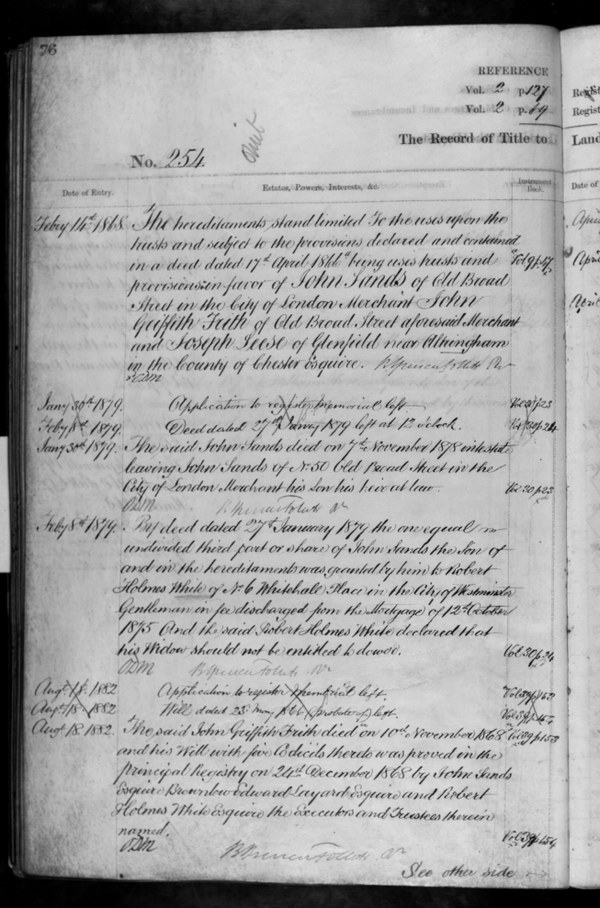 76
REFERENCE
Vol. 2 p. 127
Vol. 2 p. 69
The Record of Title to
No. 254
Date of Entry.
Estates, Powers, Interests, &c.
Instrument Book.
Feby 14th 1868. The hereditaments stand limited To the uses upon the
trusts and subject to the provisions declared and contained
in a deed dated 17th April 1866 being uses trusts and Vol 9 p 57
provisions in favor of John Sands of Old Broad
Street in the City of London Merchant John
Griffith Frith of Old Broad Street aforesaid Merchant
and Joseph Leese of Glenfield near Altringham
in the County of Chester Esquire. B Spencer Follett Rr
ODM
Jany 30th 1879. Application to register memorial left Vol 30 p 23
Feby 8th 1879. Deed dated 27th Jany 1879 left at 12 o'clock. Vol 30 p 24
Jany 30th 1879. The said John Sands died on 7th November 1878 intestate
leaving John Sands of No 50 Old Broad Street in the
City of London Merchant his Son his heir at law. Vol 30 p 23
ODM B Spencer Follett Rr
Feby 8th 1879. By deed dated 27th January 1879 the one equal
undivided third part or share of John Sands the Son of
and in the hereditaments was granted by him to Robert
Holmes White of No 6 Whitehall Place in the City of Westminster
Gentleman in fee discharged from the Mortgage of 12th October
1875 And the said Robert Holmes White declared that
his Widow should not be entitled to dower. Vol 30 p 24
ODM B Spencer Follett Rr
Augt 18. 1882 Application to register left. Vol 39 p 153
Augt 18. 1882 Will dated 23 (probate of) left. Vol 39 p 154
Augt 18. 1882. The said John Griffith Frith died on 10th November 1868 Vol 39 p 153
and his Will with five Codicils thereto was proved in the
principal Registry on 24th December 1868 by John Sands
Esquire Brownlow Edward Layard Esquire and Robert
Holmes White Esquire the Executors and Trustees therein
named. Vol 39 p 154
ODM B Spencer Follett Rr
See other side
Regist
Land
Date of
April
April
April